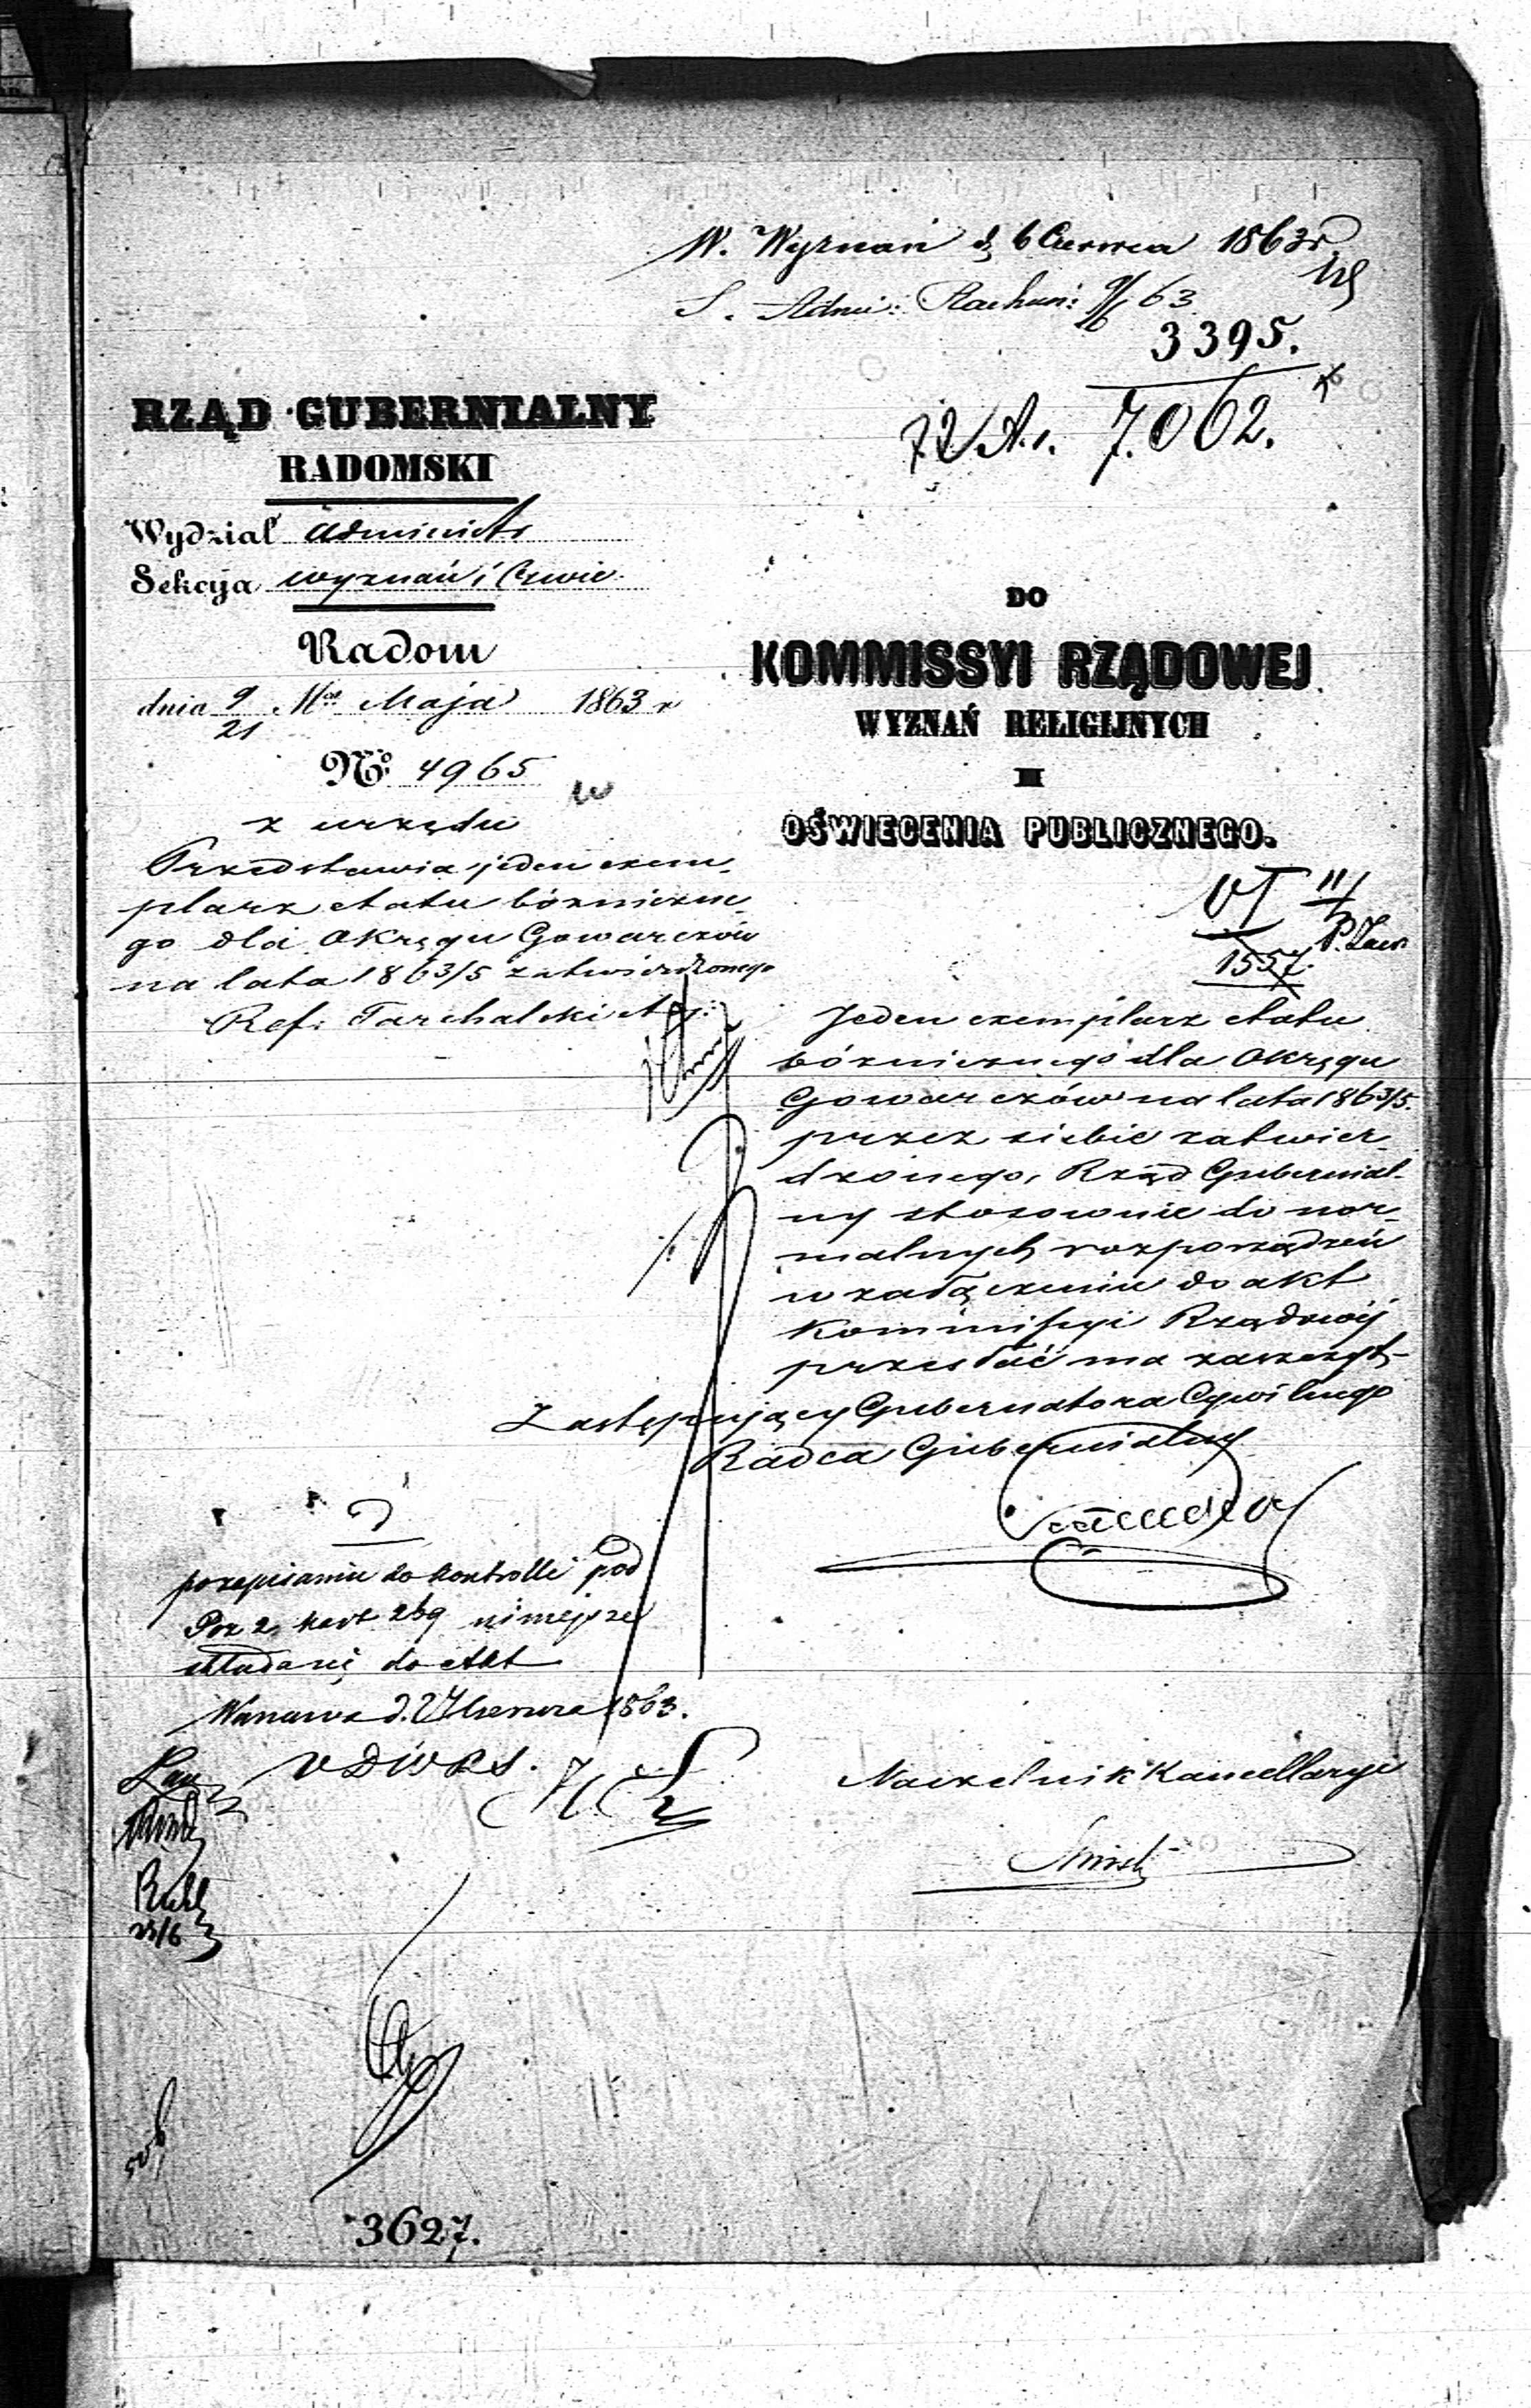 W. Wyznań d. 6 Czerwca 1863 r.
S. Admi: Rachun: 9/6 63
3395.
7062.
RZĄD GUBERNIALNY
RADOMSKI
Wydział Administr
Sekcyja wyznań i
Radom
dnia 9/21 Mca Maja 1863 r
No: 4965
z urzędu
Przedstawia jeden exem-
plarz etatu bóżniczne-
go dla Okręgu Gowarczów
na lata 1863/5 zatwierdzonego
Ref: Tarchalski
DO
KOMMISSYI RZĄDOWEJ
WYZNAŃ RELIGIJNYCH
I
OŚWIECENIA PUBLICZNEGO.
VI 11/
1557.
Jeden exemplarz etatu
bóżnicznego dla Okręgu
Gowarczów na lata 1863/5.
przez siebie zatwier-
dzonego, Rząd Gubernial-
ny stosownie do nor-
malnych rozporządzeń
w załączeniu do akt
Kommissyi Rządowéj
przesłać ma zaszczyt-
Zastępujący Gubernatora Cywilnego
Radca Gubernialny
po zapisaniu do kontrolli pod
Poz 2. kart 269 niniejsze
składa się do Akt
Warszawa d. Czerwca 1863.
Naczelnik Kancellaryi
23/6
3627.